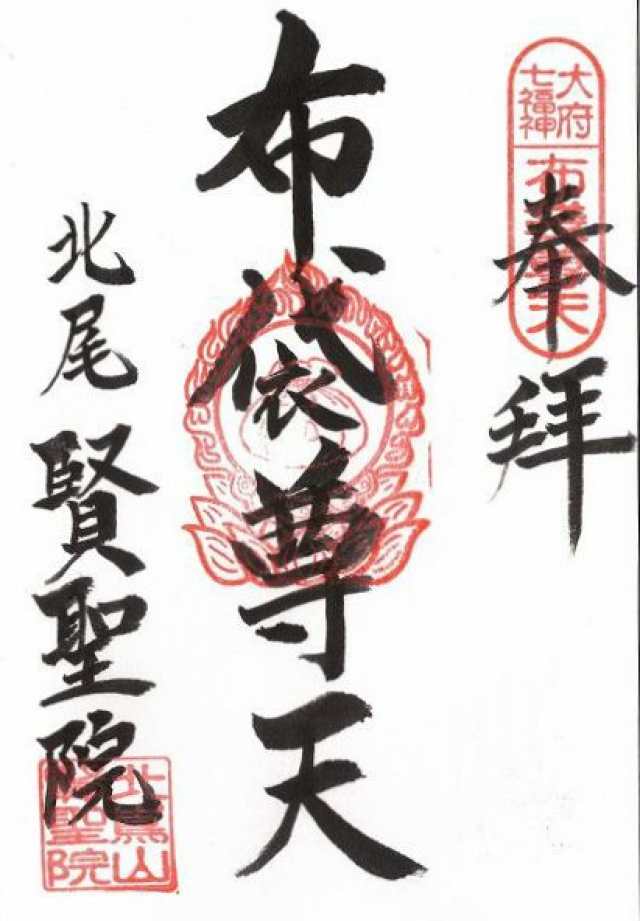 大府
七福神
布袋尊天
奉拝
布袋尊天
北尾
賢聖院
北尾山
賢聖院